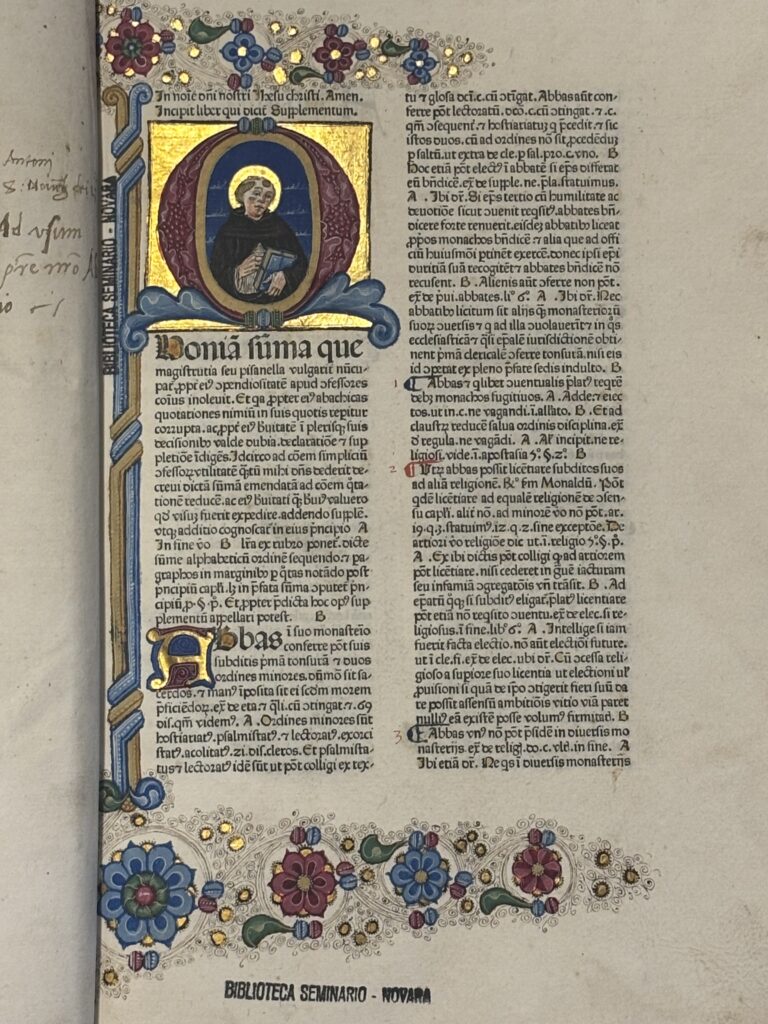 Antoni
Ad usum
BIBLIOTECA SEMINARIO - NOVARA
In noīe dn̄i nostri Ihesu christi. Amen.
Incipit liber qui dicit᷑ Supplementum.
Qoniā sūma que
magistrutia seu pisanella vulgarit᷑ nūcu-
pat᷑, ꝓpt᷑ eiꝰ ↄpendiositatē apud ↄfessores
cōius inoleuit. Et qa ꝓpter eiꝰ abachicas
quotationes nimiū in suis quotis repitur
corrupta. ac ꝓpt᷑ eiꝰ b̾uitatē ī plerisqꝫ suis
decisionibꝰ valde dubia. declaratiōe ⁊ sup
pletiōe īdigēs. Idcirco ad cōem simpliciū
ↄfessoꝝ vtilitatē qʒtū mihi dn̄s dederit de-
creui dictā sūmā emendatā ad cōem q̄ta-
tionē reducē. ac eiꝰ b̾uitati
qd̄ visuʒ fuerit expedire. addendo supplē.
vtqꝫ additio cognoscat᷑ in eius p̄ncipio A
In fine v̾o B lr̄a ex rubro ponet᷑. dicte
sūme alphabeticū ordinē sequendo. ⁊ pa-
graphos in marginibꝰ ꝑ q̄tas notādo post
pncipiū capl̄i. lꝫ in p̄fata sūma ↄputet᷑ pn̄-
cipiū. ꝓ .§. pꝰ. Et ꝓpter p̄dicta hoc opꝰ sup
plementū appellari potest. B
Abbas ī suo monasterio
conferre pōt suis
subditis pͥmā tonsurā ⁊ duos
ordines minores. dūmō sit sa-
cerdos. ⁊ manꝰ īposita sit ei scd̄m morem
dis. qm̄ videmꝰ. A . Ordines minores sūt
hostiariatꝰ. psalmistatꝰ. ⁊ lectoratꝰ. exorci
statꝰ. acolitatꝰ. zi. dis. cleros. Et psalmista-
tus ⁊ lectoratꝰ idē sūt ut pōt colligi ex tex-
tu ⁊ glosa dc̄i .c. cū ↄtīgat. Abbas aūt con-
ferre pōt lectoratū. dco .c. cū ↄtingat. ⁊ .c.
qm̄ .⁊ sequent᷑. ⁊ hostiariatuʒ q p̄cedit. ⁊ sic
istos duos. cū ad ordines nō sit ꝓcedēduʒ
ꝑ saltū. ut extra de cle. ꝑ sal. pro .c. vno. B
Hoc etiā pōt electꝰ ī abbatē si ep̄s differat
eū bn̄dicē. ex̄ de supple. ne. pla. statuimus.
A . Ibi dr̄. Si ep̄s tertio cū humilitate ac
deuotiōe sicut ↄuenit reqsitꝰ. abbates bn̄-
dicere forte renuerit. eisdeʒ abbatibꝰ liceat
ꝓprios monachos bn̄dicē ⁊ alia que ad offi
ciū huiusmōi ptinēt exercē. donec ipsi ep̄i
duritiā suā recogitēt ⁊ abbates bn̄dicē nō
recusent. B . Alienis aūt ↄferre non pōt.
ex̄ de pui. abbates. li. 6°. A . Ibi dr̄. Nec
abbatibꝰ licitum sit alijs qꝫ monasterioꝝ
suoꝝ ↄuersis ⁊ q ad illa ↄuolauerīt ⁊ in qs
ecclesiasticā ⁊ qsi ep̄alē iurisdictionē obti-
nent pͥmā clericalē ↄferre tonsurā. nisi eis
id ↄpetat ex pleno p̄fate sedis indulto. B
1 Abbas ⁊ qlibet ↄuentualis p̄latꝰ reqrē
debꝫ monachos fugitiuos. A . Adde. ⁊ eiec
tos. ut in .c. ne vagandi. ī. allato. B . Et ad
claustꝝ reducē salua ordinis disciplina. ex̄
de regula. ne vagādi. A . Al̓ incipit. ne re-
ligiosi. vide .ī. apostasia 5°. §. 2°. B
2 Utꝝ abbas possit licētiare subditos suos
ad aliā religionē. R̄° fm Monaldū. Pōt
qdē licētiare ad equalē religionē de ↄsen-
su capl̄i. alit᷑ nō. ad minorē v̾o nō pōt. ar.
19. q. 3. statuimꝰ. iz. q. 2. sine exceptōe. De
artiori v̾o religiōe dic ut .ī. religio 5°. §. pͥ.
A . Ex ibi dictis pōt colligi q ad artiorem
pōt licētiare. nisi cederet in qʒ iacturam
seu infamiā ↄgregatōis vn̄ trāsit. B . Ad
ep̄atū qꝫ si subditꝰ eligat᷑. p̄latꝰ licentiare
pōt etiā nō reqsito ↄuentu. ex̄ de elec. si re-
ligiosus .ī. fine. lib. 6°. A . Intellige si iam
fuerit facta electio. nō aūt electiōi future.
ut ī cle. fi. ex̄ de elec. ubi dr̄. Cū ↄcessa reli-
gioso a supiore suo licentia ut electioni ul̓
ꝓuisioni si qua de ipo ↄtigerit fieri suū da
re possit assensū ambitiōis vitio viā paret
nulliꝰ eā existē posse volumꝰ firmitatꝭ. B
3 Abbas vnꝰ nō pōt p̄sidē in diuersis mo
nasterijs. ex̄ de relig. do .c. vl̓t. in fine. A
Ibi etiā dr̄. Ne qs ī diuersis monasterijs
BIBLIOTECA SEMINARIO - NOVARA